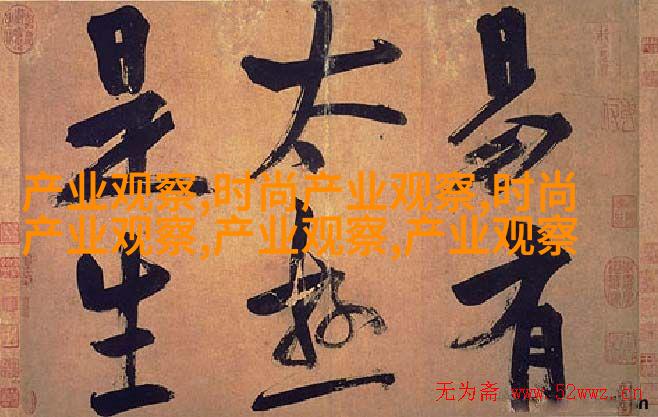 易有
太极
是生
产业观察,时尚产业观察,时尚
产业观察,产业观察,产业观察
无为斋 www.52wwz.cn
n